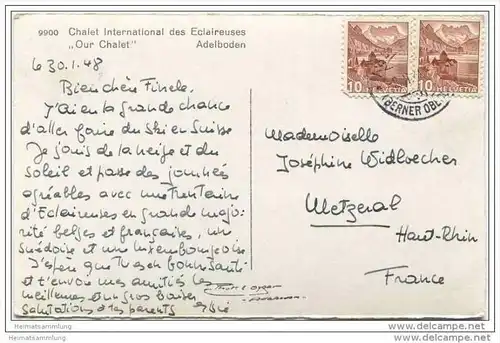 9900 Chalet International des Eclaireuses
„Our Chalet" Adelboden
le 30.1.48
Bien chère Finele.
J'ai eu la grande chance
d'aller faire du ski en Suisse
Je jouis de la neige et du
soleil et passe des journées
agréables avec une trentaine
d'Eclaireuses en grande majo-
rité belges et françaises, un
suédoise et un luxembourgeoise
J'espère que tu es en bonne santé
et t'envoie mes amitiés les
meilleures et un gros baiser
salutations à tes parents
10 HELVETIA 10 HELVETIA
(BERNER OBL.)
Mademoiselle
Joséphine Widloecher
Metzeral
Haut-Rhin
France
Heimatsammlung
heimatsammlung.de